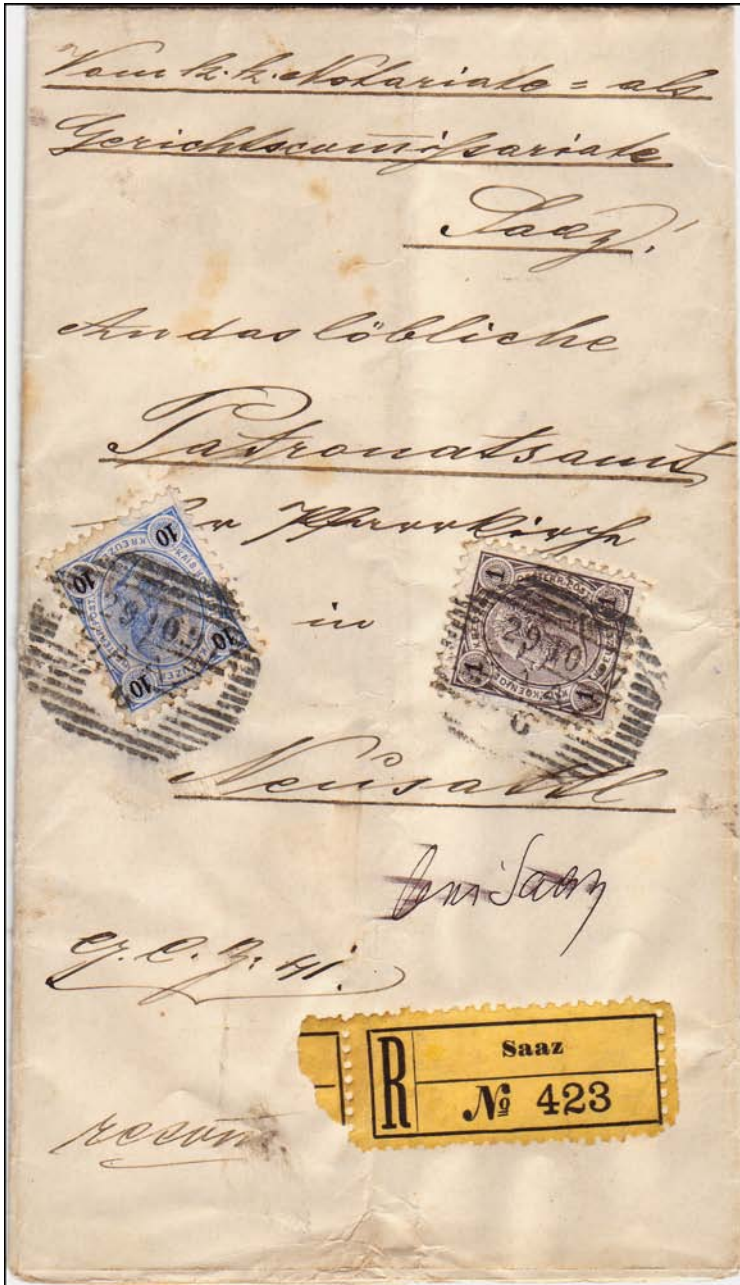 Vom k. k. Notariate = als
Gerichtscommissariate
Saaz!
An das löbliche
Patronatsamt
der Pfarrkirche
in
Neusattl
bei Saaz
G. C. Z: 41.
recom
Saaz
R
№ 423
10
10
10
10
KREUZER
29 10
1
1
1
1
29 10
6